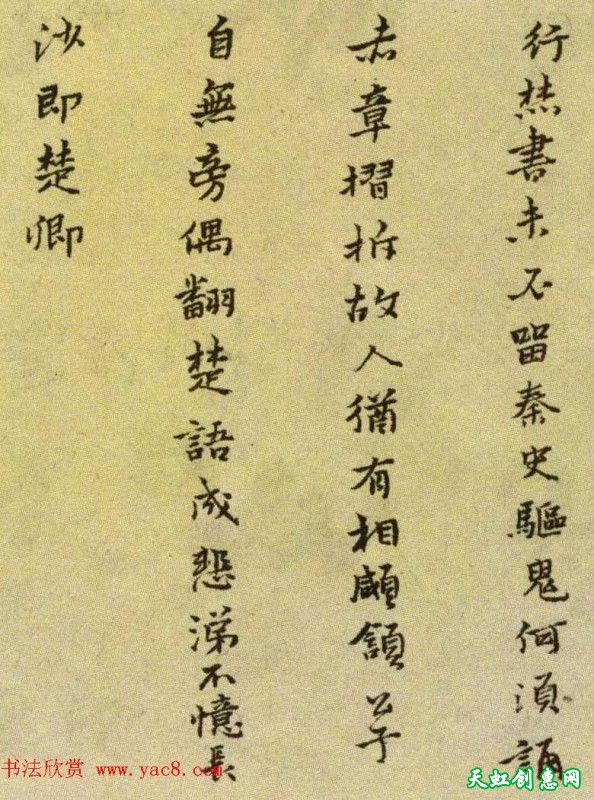 行焚書未不留秦史驅鬼何須誦
赤章摺拆故人猶有相顑頷公子
自無旁偶翻楚語成悲涕不憶長
沙即楚卿
书法欣赏 www.yac8.com
天虹创惠网